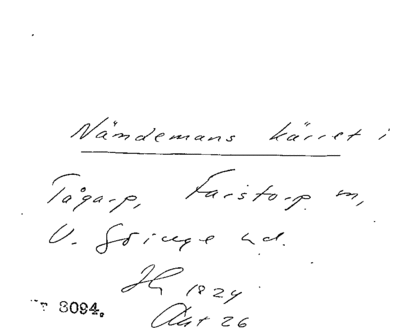 Nämdemans kärret i
Tågarp, Farstorp m,
V. Göinge hd.
1824
Akt 26
3094.